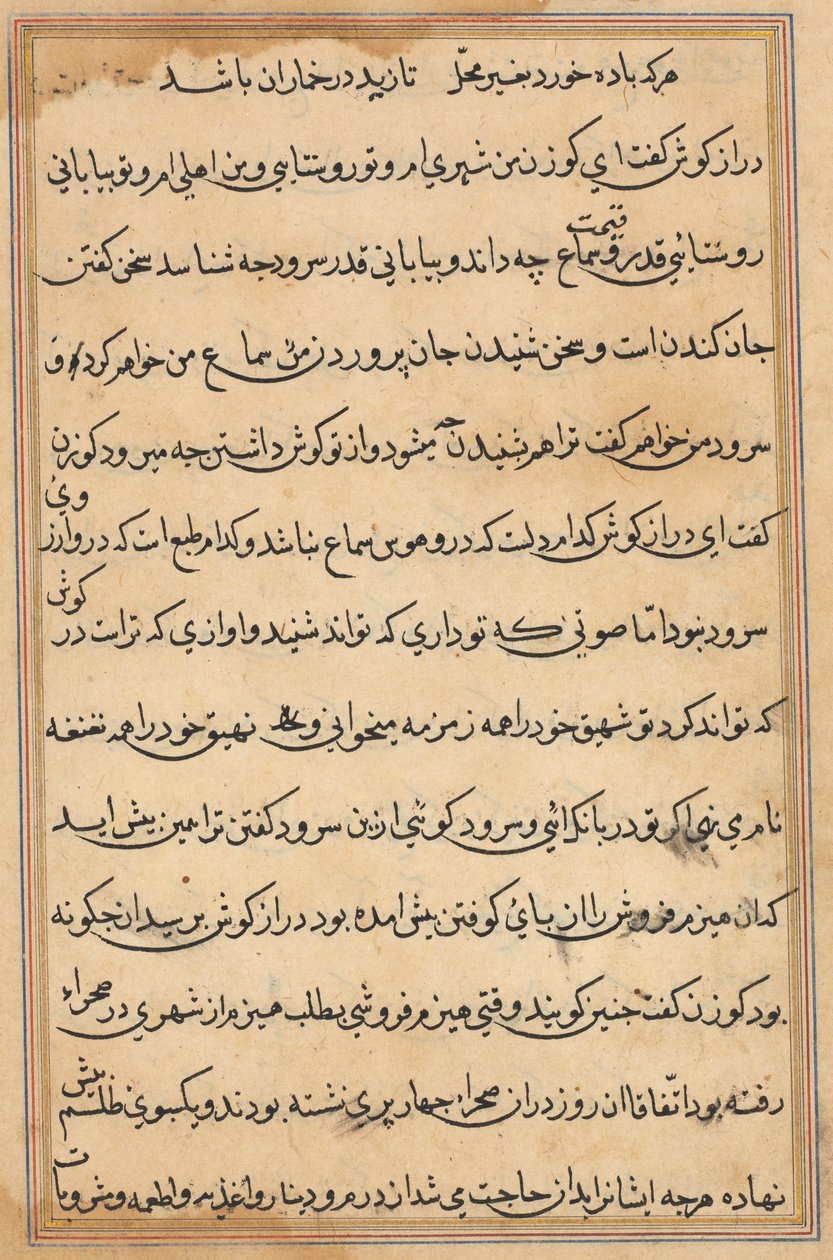 هرکه باده خورد بغیر محلّ تا زید در خماران باشد
دراز کوش کفت ای کوزن من شهری ام و تو روستایی و من اهلی ام و تو بیابانی
روستائی قدر و قیمت سماع چه داند و بیابانی قدر سرود جه شناسد سخن کفتن
جان کندن است و سخن شنیدن جان پروردن من سماع من خواهم کرد و
سرود من خواهم کفت ترا هم بشنیدن جه میشود و از تو کوش داشتن جه میرود کوزن
کفت ای دراز کوش کدام دلست که درو هوس سماع نباشد و کدام طبع است که درو ارزوئ
سرود نبود امّا صوتی که تو داری که تواند شنید و اوازی که تراست در کوش
که تواند کرد تو شهیق خود را همه زمزمه میخوانی و نهیق خود را همه نغنغه
نام می نهی اکر تو در بانک ائی و سرود کوئی ازین سرود کفتن ترا همین بیش اید
که ان هیزم فروش را از بائ کوفتن بیش امده بود دراز کوش برسید ان جکونه
بود کوزن کفت جنین کویند وقتی هیزم فروشی بطلب هیزم از شهری در صحراء
رفته بود اتّفاقا ان روز در ان صحراء جهار پری نشسته بودند و یکسوی طلسم بیش
نهاده هرجه ایشانرا بدان حاجت می شد از درم و دینار و اغذیه و اطعمه و مشروبات